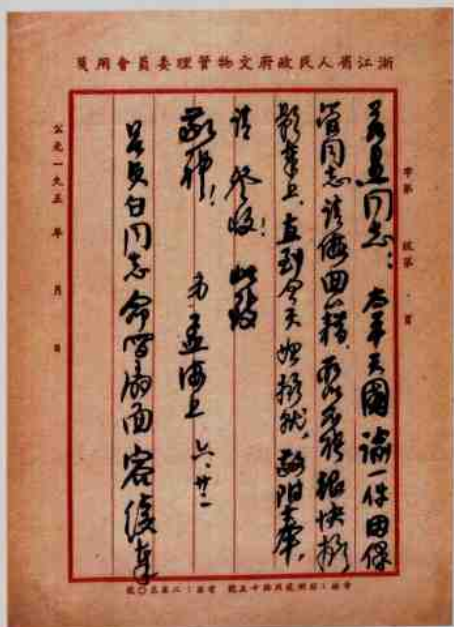 浙江省人民政府文物管理委員會用箋
字第 號第 頁
同志：太平天國諭一件因保
管同志請假回籍，所以不能很快攝
影奉上，直到今天始攝就，敬附奉，
請 收！此致
敬禮！ 弟孟海上 六、廿二
吳貞白同志命寫扇面容後奉
公元一九五 年 月 日